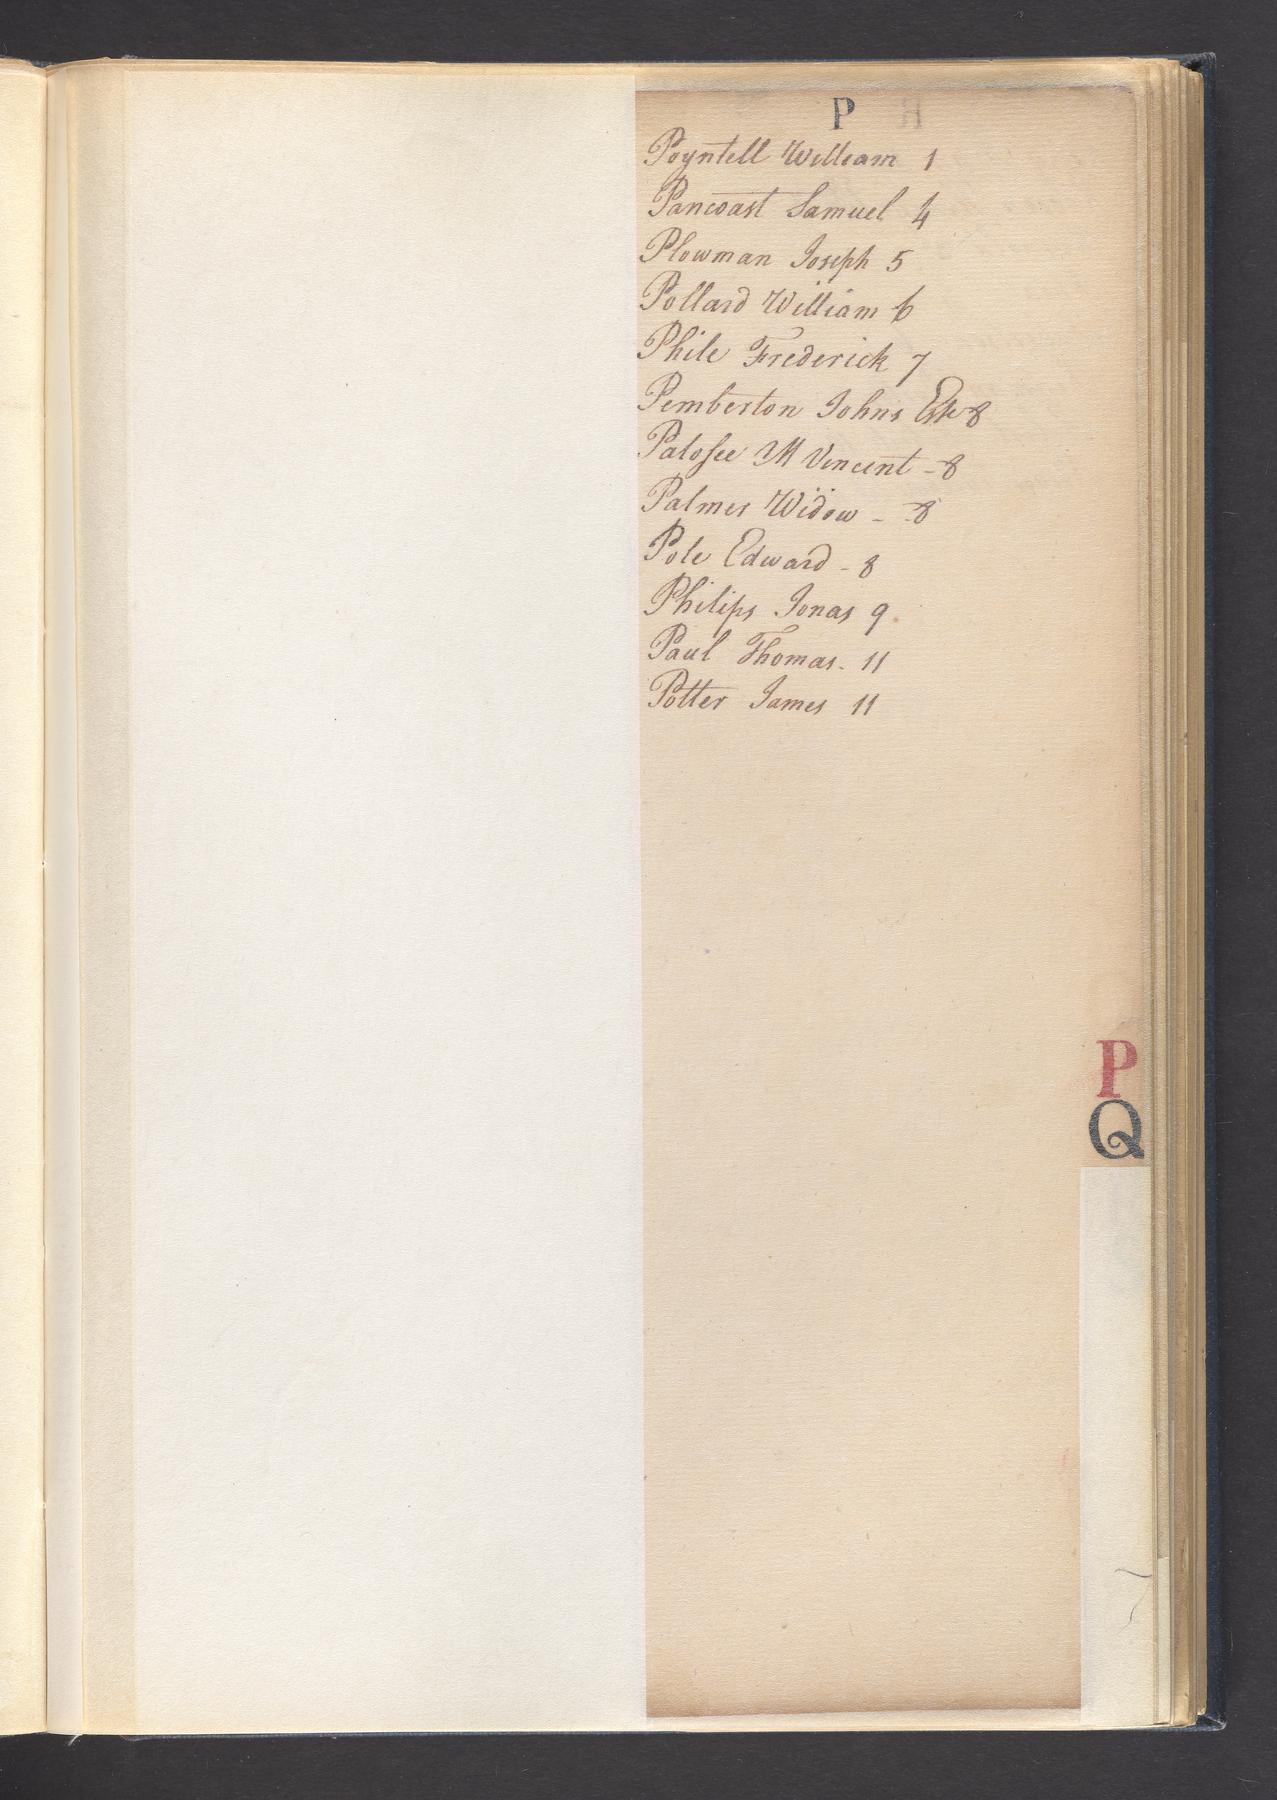 P
Poyntell William 1
Pancoast Samuel 4
Plowman Joseph 5
Pollard William 6
Phile Frederick 7
Pemberton Johns Est 8
Palosee M Vincent - 8
Palmer Widow - 8
Pole Edward - 8
Philips Jonas 9
Paul Thomas. 11
Potter James 11
P
Q